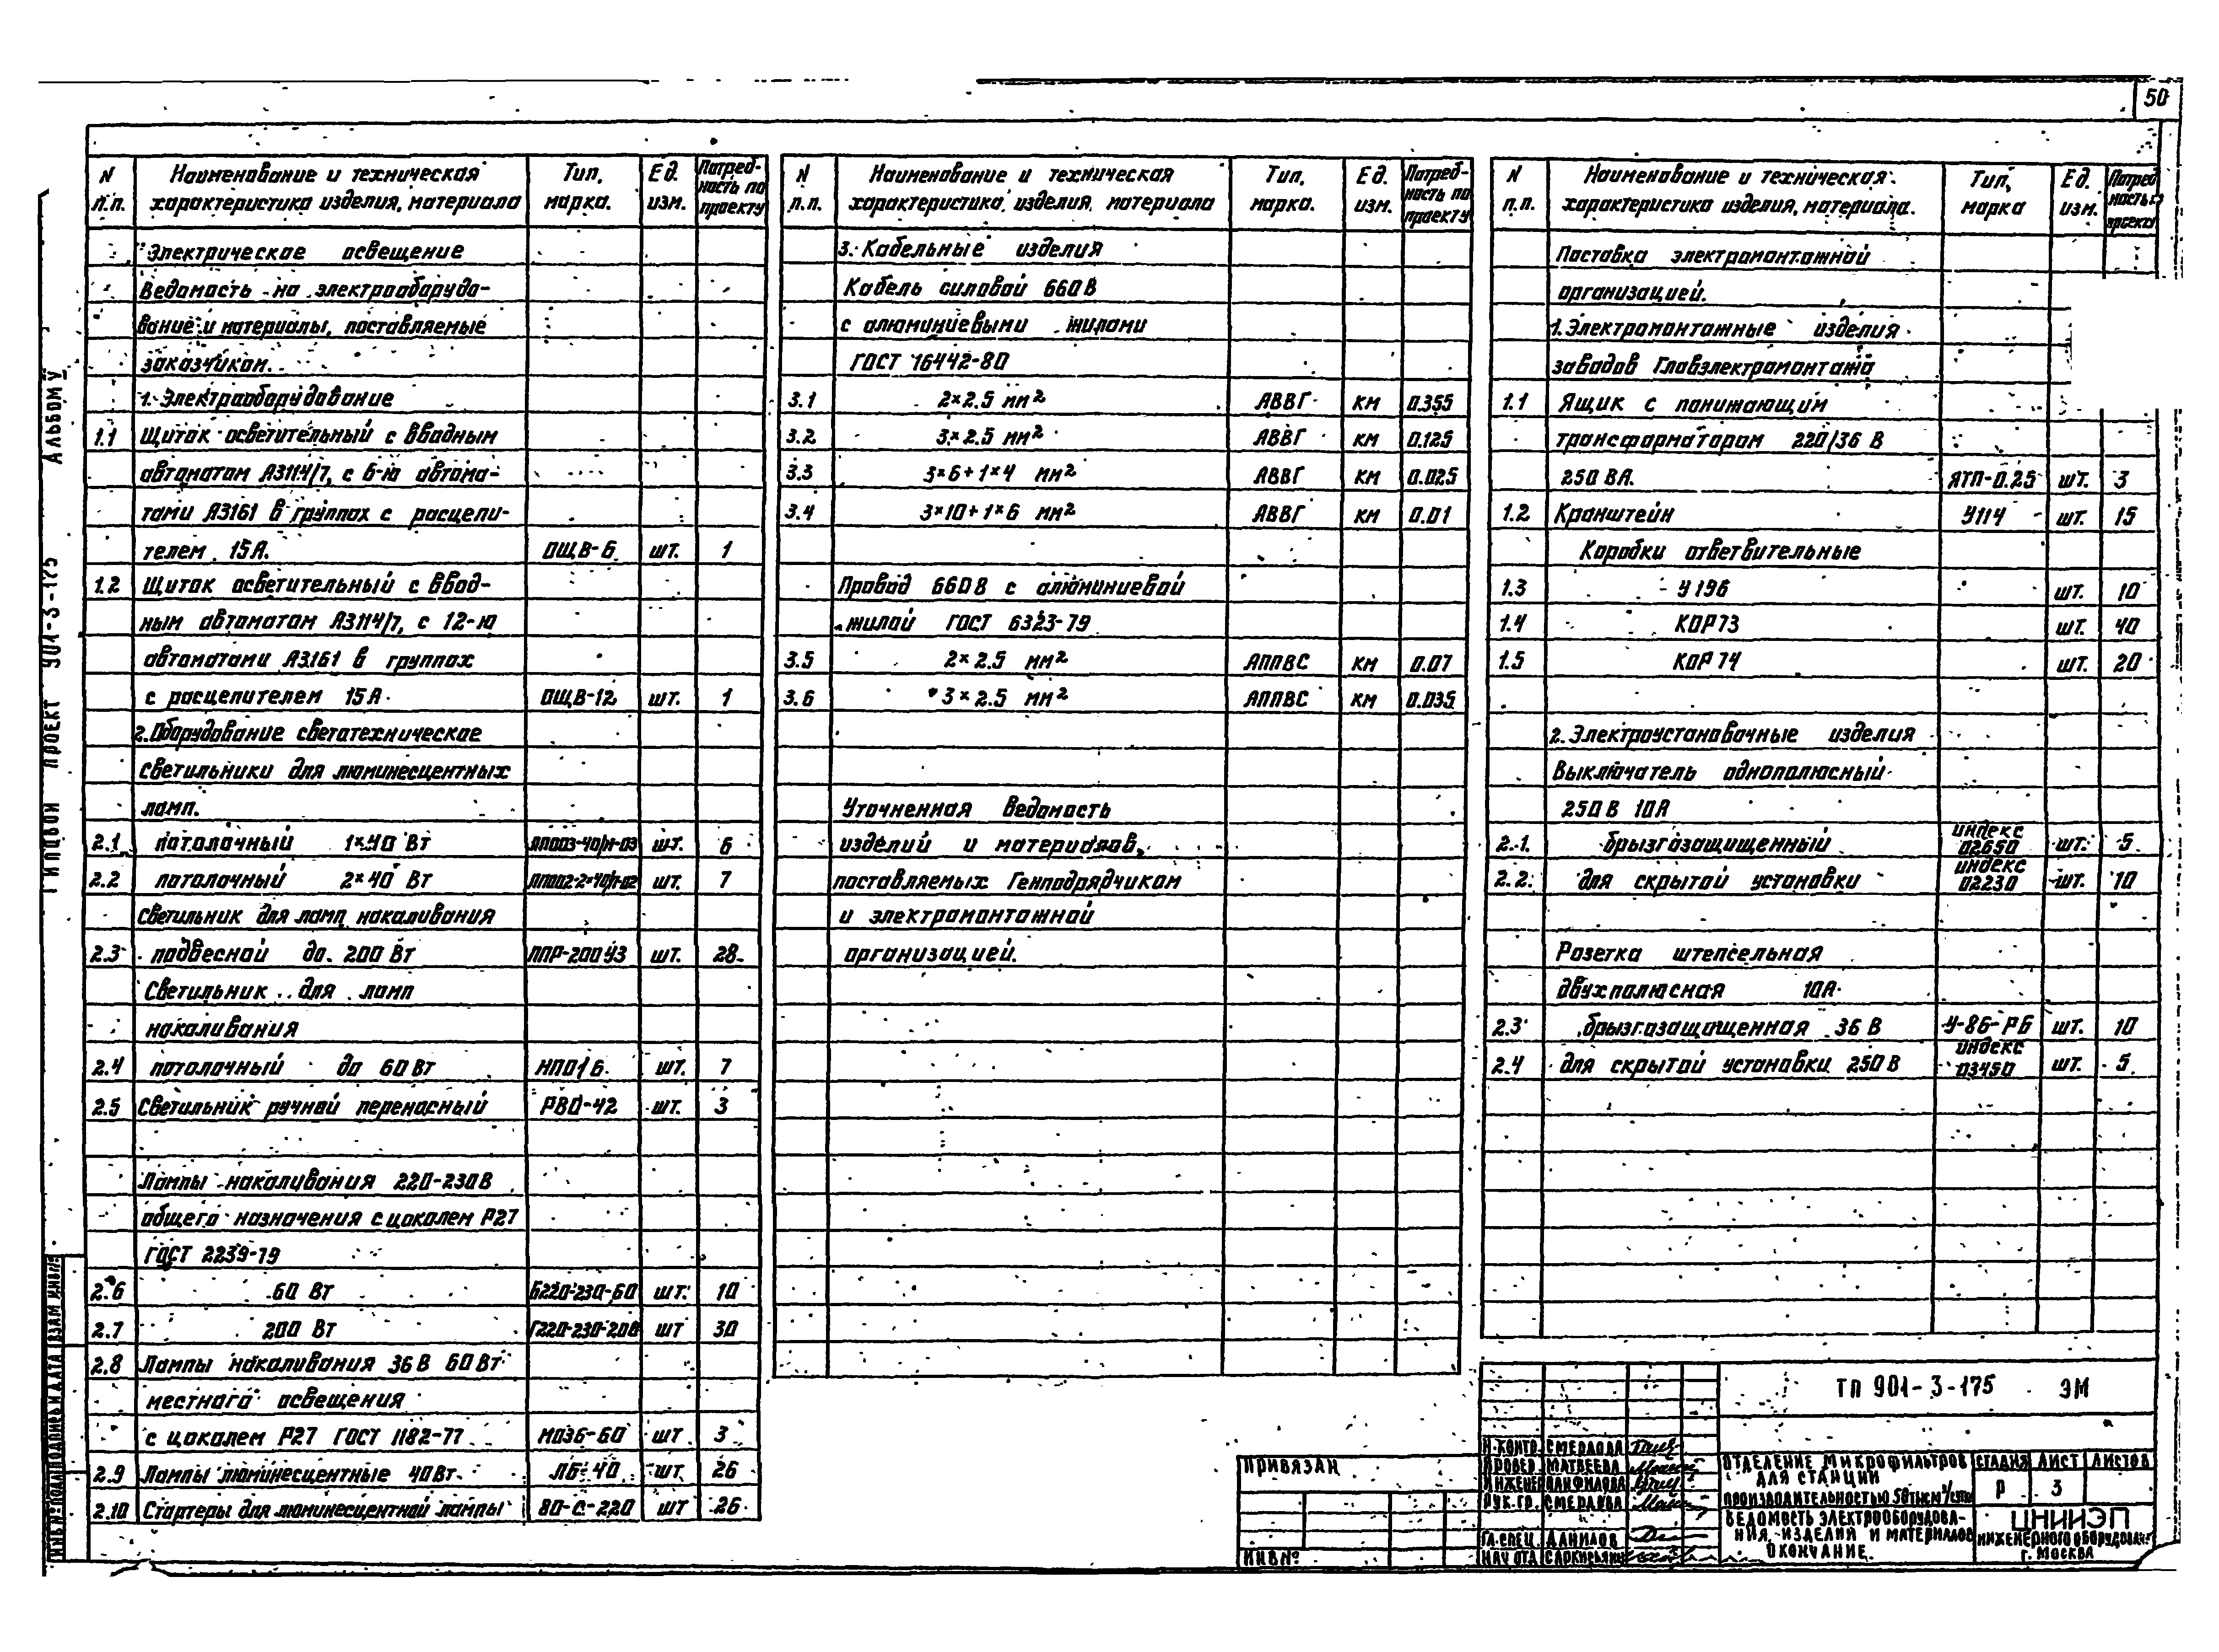 50
АЛЬБОМ V
ТИПОВОЙ ПРОЕКТ 901-3-175
N п.п. Наименование и техническая характеристика изделия, материала Тип, марка. Ед. изм. Потребность по проекту
Электрическое освещение
Ведомость на электрооборудо-
вание и материалы, поставляемые
заказчиком.
1. Электрооборудование
1.1 Щиток осветительный с вводным
автоматом А3114/7, с 6-ю автома-
тами А3161 в группах с расцепи-
телем 15А. ОЩВ-6 шт. 1
1.2 Щиток осветительный с ввод-
ным автоматом А3114/7, с 12-ю
автоматами А3161 в группах
с расцепителем 15А ОЩВ-12 шт. 1
2. Оборудование светотехническое
Светильники для люминесцентных
ламп.
2.1 потолочный 1×40 Вт шт. 6
2.2 потолочный 2×40 Вт шт. 7
Светильник для ламп накаливания
2.3 подвесной до 200 Вт ППР-200У3 шт. 28
Светильник для ламп
накаливания
2.4 потолочный до 60 Вт НПО16 шт. 7
2.5 Светильник ручной переносный РВО-42 шт. 3
Лампы накаливания 220-230В
общего назначения с цоколем Р27
ГОСТ 2239-79
2.6 60 Вт Б220-230-60 шт. 10
2.7 200 Вт Г220-230-200 шт 30
2.8 Лампы накаливания 36В 60Вт
местного освещения
с цоколем Р27 ГОСТ 1182-77 МО36-60 шт 3
2.9 Лампы люминесцентные 40Вт. ЛБ-40 шт 26
2.10 Стартеры для люминесцентной лампы 80-С-220 шт 26
N п.п. Наименование и техническая характеристика изделия, материала Тип, марка. Ед. изм. Потребность по проекту
3. Кабельные изделия
Кабель силовой 660В
с алюминиевыми жилами
ГОСТ 16442-80
3.1 2×2.5 мм² АВВГ км 0.355
3.2 3×2.5 мм² АВВГ км 0.125
3.3 3×6+1×4 мм² АВВГ км 0.025
3.4 3×10+1×6 мм² АВВГ км 0.01
Провод 660В с алюминиевой
жилой ГОСТ 6323-79
3.5 2×2.5 мм² АППВС км 0.07
3.6 3×2.5 мм² АППВС км 0.035
Уточненная ведомость
изделий и материалов,
поставляемых Генподрядчиком
и электромонтажной
организацией.
N п.п. Наименование и техническая характеристика изделия, материала. Тип, марка Ед. изм. Потребность по проекту
Поставка электромонтажной
организацией.
1. Электромонтажные изделия
заводов Главэлектромонтажа
1.1 Ящик с понижающим
трансформатором 220/36 В
250 ВА. ЯТП-0.25 шт. 3
1.2 Кронштейн У114 шт. 15
Коробки ответвительные
1.3 У196 шт. 10
1.4 КОР73 шт. 40
1.5 КОР74 шт. 20
2. Электроустановочные изделия
Выключатель однополюсный
250 В 10А
2.1. брызгазащищенный индекс 02650 шт. 5
2.2. для скрытой установки индекс 02230 шт. 10
Розетка штепсельная
двухполюсная 10А
2.3 брызгазащащенная 36 В У-86-РБ шт. 10
2.4 для скрытой установки 250 В индекс 03450 шт. 5
ТП 901-3-175 ЭМ
Н.КОНТР. СМЕРДОВА
ПРОВЕР. МАТВЕЕВА
ИНЖЕНЕР ПАНФИЛОВА
РУК.ГР. СМЕРДОВА
ГЛ.СПЕЦ. ДАНИЛОВ
НАЧ ОТД
ОТДЕЛЕНИЕ МИКРОФИЛЬТРОВ
ДЛЯ СТАНЦИИ
ПРОИЗВОДИТЕЛЬНОСТЬЮ 50тыс.м³/сутки
СТАДИЯ ЛИСТ ЛИСТОВ
Р 3
ВЕДОМОСТЬ ЭЛЕКТРООБОРУДОВА-
НИЯ, ИЗДЕЛИЙ И МАТЕРИАЛОВ
ОКОНЧАНИЕ.
ЦНИИЭП
ИНЖЕНЕРНОГО ОБОРУДОВАН.
Г. МОСКВА
ПРИВЯЗАН
ИНВ№
ИНВ № ПОДЛ ПОДПИСЬ И ДАТА ВЗАМ ИНВ №